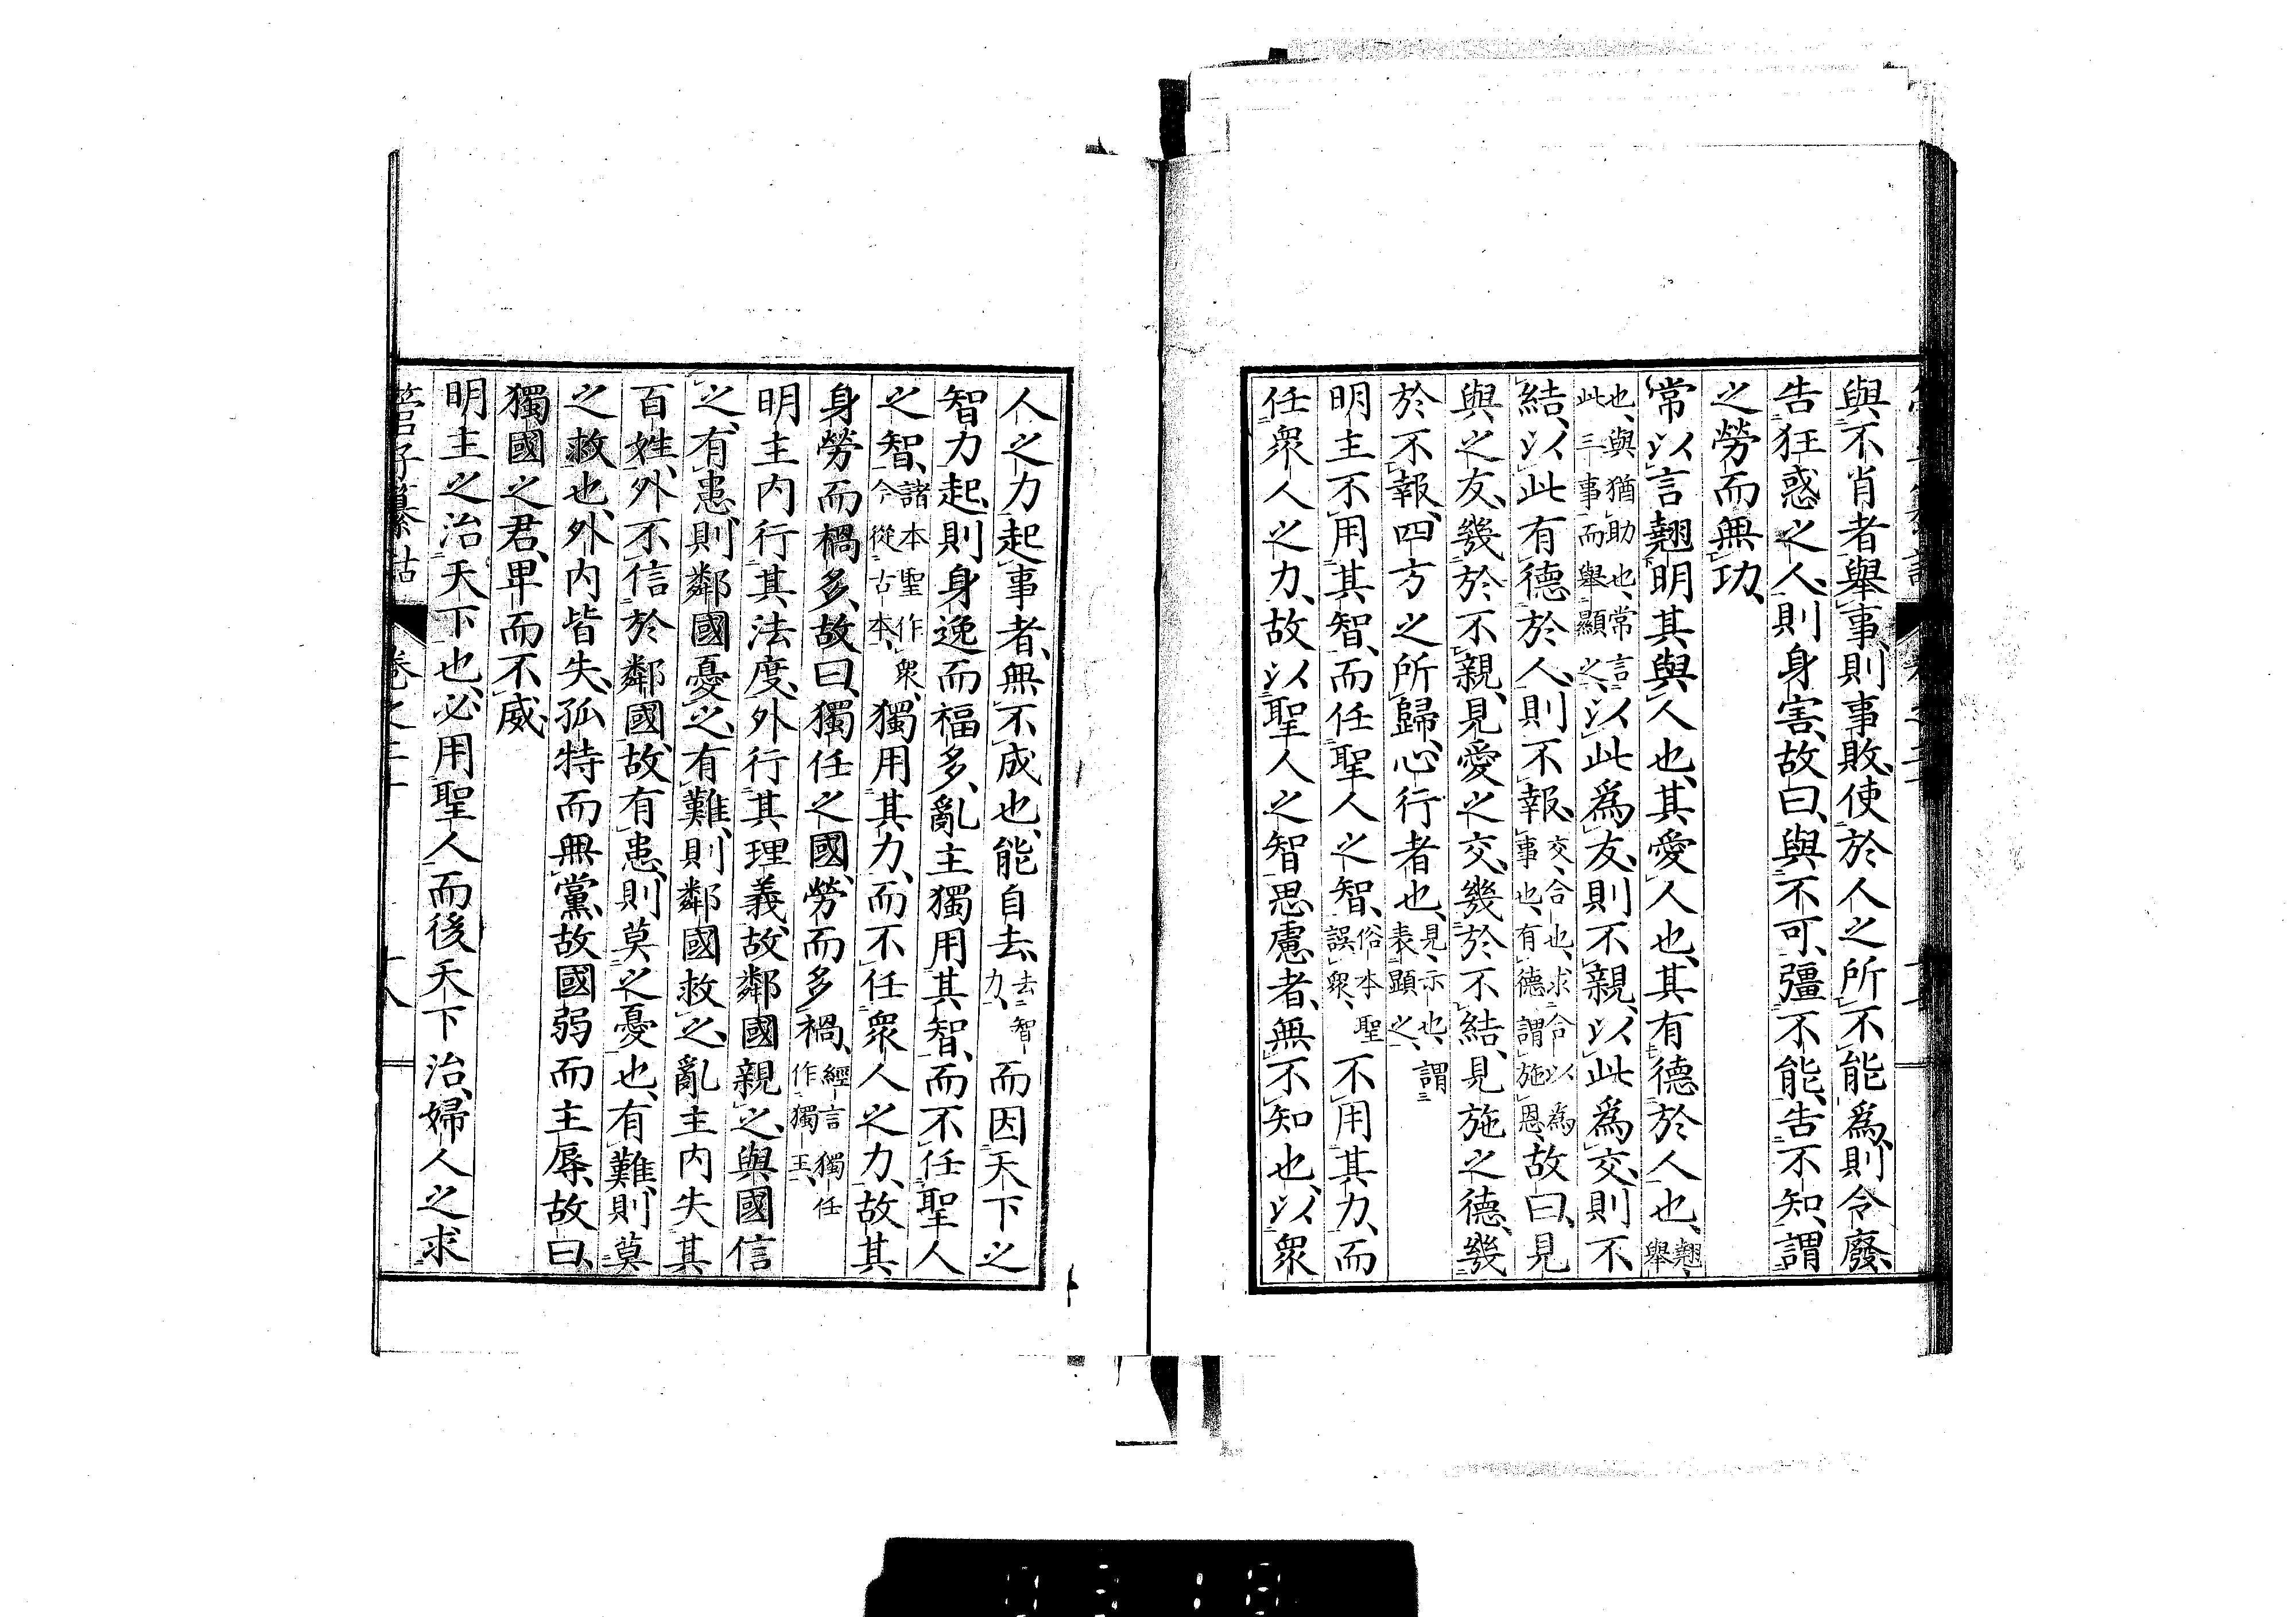 與、不肖者舉事、則事敗、使於人之所不能爲、則令廢、
告狂惑之人、則身害、故曰、與不可、彊不能、告不知、謂
之勞而無功、
常以言翹明其與人也、其愛人也、其有德於人也、翹、舉
也、與猶助也、常言此三事而舉顯之、以此爲友、則不親、以此爲交、則不
結、以此有德於人、則不報、交、合也、求合以為事也、有德謂施恩、故曰、見
與之友、幾於不親、見愛之交、幾於不結、見施之德、幾
於不報、四方之所歸、心行者也、見、示也、謂表顯之、
明主不用其智、而任聖人之智、俗本聖誤衆、不用其力、而
任衆人之力、故以聖人之智思慮者、無不知也、以衆
人之力起事者、無不成也、能自去、去智力、而因天下之
智力起、則身逸而福多、亂主獨用其智、而不任聖人
之智、諸本聖作衆、今從古本、獨用其力、而不任衆人之力、故其
身勞而禍多、故曰、獨任之國、勞而多禍、經言獨任作獨王、
明主内行其法度、外行其理義、故鄰國親之、與國信
之、有患則鄰國憂之、有難、則鄰國救之、亂主内失其
百姓、外不信於鄰國、故有患、則莫之憂也、有難、則莫
之救也、外内皆失、孤特而無黨、故國弱而主辱、故曰、
獨國之君、卑而不威、
明主之治天下也、必用聖人、而後天下治、婦人之求
管子纂詁 卷之二十 十八